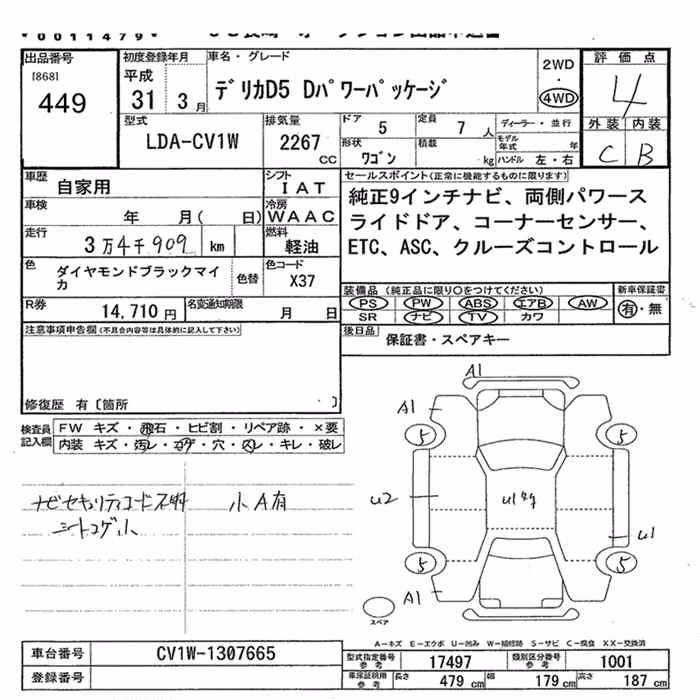 0011479
出品番号
[868]
449
初度登録年月
平成
31 3月
車名・グレード
デリカD5 Dパワーパッケージ
2WD
・
4WD
評価点
4
外装 内装
C B
型式
LDA-CV1W
排気量
2267
CC
ドア 5
定員 7 人
形状 ワゴン
積載 kg
ディーラー・並行
モデル年式 年
ハンドル 左・右
車歴
自家用
シフト
IAT
車検
年 月( 日)
冷房
WAAC
走行
3万4千909 km
燃料
軽油
色
ダイヤモンドブラックマイカ
色替
色コード
X37
R券
14,710 円
名変通知期限
月 日
セールスポイント(正常に機能するものに限ります)
純正9インチナビ、両側パワース
ライドドア、コーナーセンサー、
ETC、ASC、クルーズコントロール
装備品(純正品に限り○をつけてください)
PS PW ABS エアB AW
SR ナビ TV カワ
新車保証書
有・無
後日品
保証書・スペアキー
注意事項申告欄(不具合内容等は具体的に記入して下さい)
修復歴 有〔箇所 〕
検査員
記入欄
FW キズ・飛石・ヒビ割・リペア跡・×要
内装 キズ・汚レ・コゲ・穴・スレ・キレ・破レ
ナビセキュリティコード不明
シートコゲ小
小A有
A1
A1
5
5
U2
U1
5
5
A1
スペア
A-キズ E-エクボ U-凹み W-補修跡 S-サビ C-腐食 XX-交換済
車台番号
CV1W-1307665
登録番号
型式指定番号
参考
17497
類別区分番号
参考
1001
車庫証明用
参考
長さ 479 cm
幅 179 cm
高さ 187 cm